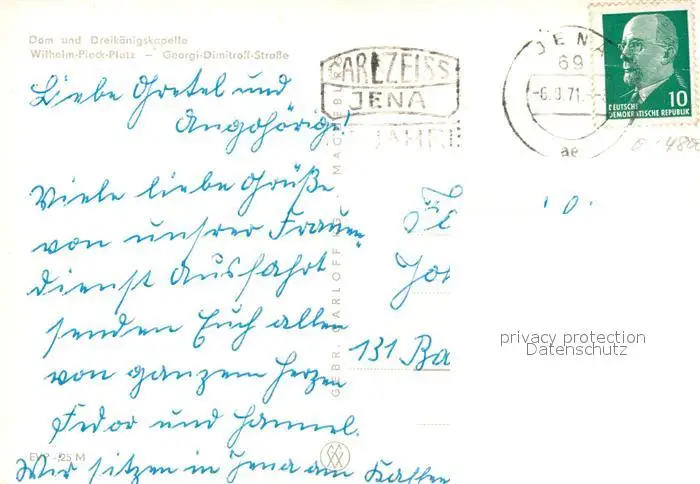 Dom und Dreikönigskapelle
Wilhelm-Pieck-Platz — Georgi-Dimitroff-Straße
CARL ZEISS
JENA
JAHRE
JENA
69
-6.8.71.-
ae
10
DEUTSCHE
DEMOKRATISCHE REPUBLIK
Liebe Gretel und
Angehörige!
Viele liebe Grüße
von unsrer Frauen
dienst Ausfahrt
senden Euch allen
von ganzem Herzen
Fedor und Hannel.
Wir sitzen in Jena am Kaffee
131 Ba
EVP -,25 M
GEBR. GARLOFF KG. MAGDEBURG
privacy protection
Datenschutz